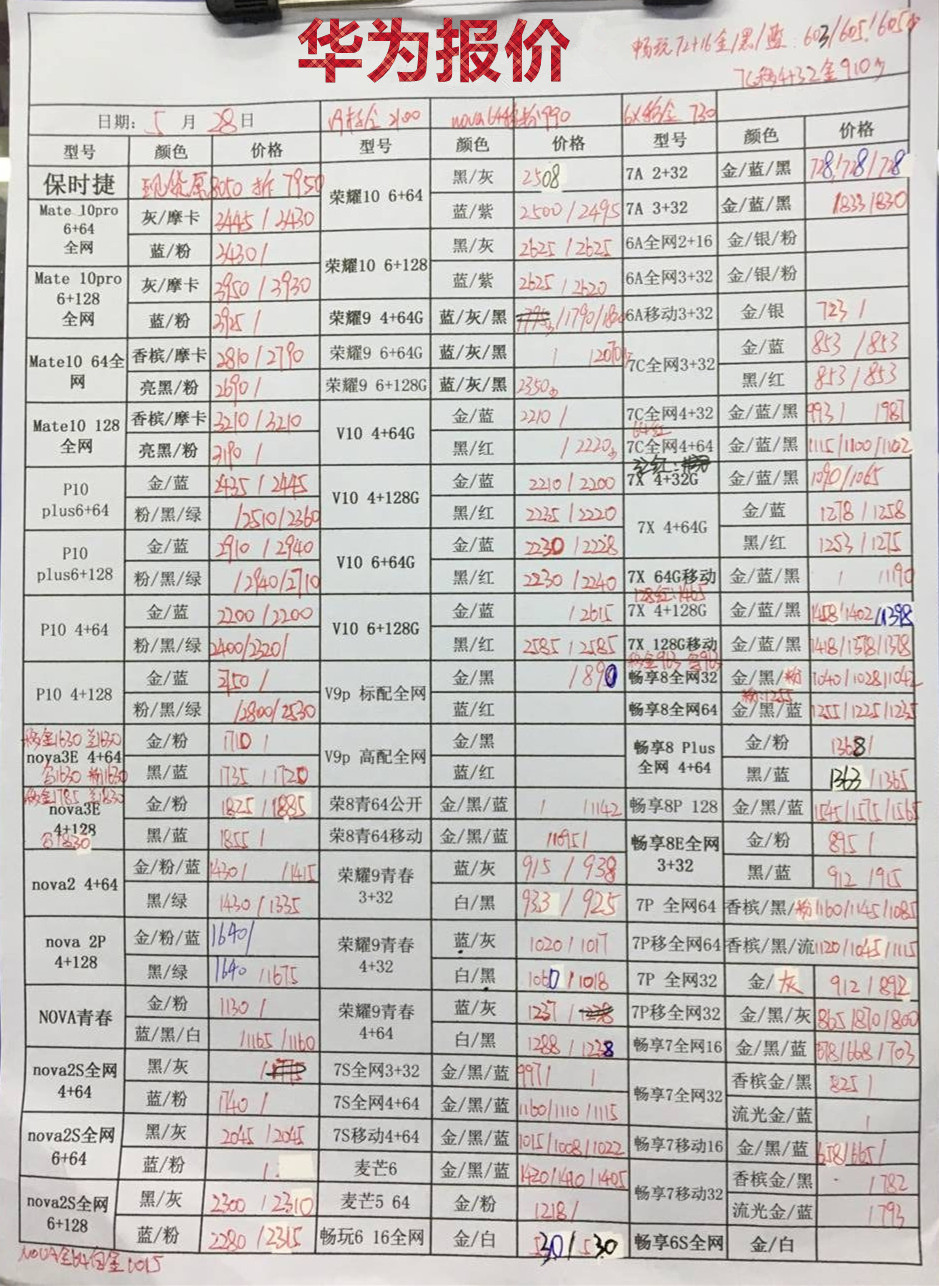 华为报价
畅玩72+16金/黑/蓝:603/605/605
7C移4+32金910
日期: 5 月 28 日
nova 990
730
型号 颜色 价格 型号 颜色 价格 型号 颜色 价格
保时捷 现货原8050 拆7950
荣耀10 6+64 黑/灰 2508
蓝/紫 2500/2495
7A 2+32 金/蓝/黑 728/728/728
7A 3+32 金/蓝/黑 /833/830
Mate 10pro 6+64 全网 灰/摩卡 3445/3430
蓝/粉 3430/
荣耀10 6+128 黑/灰 2625/2625
蓝/紫 2625/2620
6A全网2+16 金/银/粉
6A全网3+32 金/银/粉
Mate 10pro 6+128 全网 灰/摩卡 3950/3930
蓝/粉 3925/
荣耀9 4+64G 蓝/灰/黑 /1790/180
6A移动3+32 金/银 723/
Mate10 64全网 香槟/摩卡 2810/2790
亮黑/粉 2690/
荣耀9 6+64G 蓝/灰/黑 / /2070
荣耀9 6+128G 蓝/灰/黑 2350
7C全网3+32 金/蓝 853/853
黑/红 853/853
Mate10 128全网 香槟/摩卡 3210/3210
亮黑/粉 3190/
V10 4+64G 金/蓝 2210/
黑/红 /2220
7C全网4+32 金/蓝/黑 993/ /987
7C全网4+64 金/蓝/黑 1115/1100/1102
P10 plus6+64 金/蓝 2435/2445
粉/黑/绿 /2510/2360
V10 4+128G 金/蓝 2210/2200
黑/红 2235/2220
7X 4+32G 金/蓝/黑 1090/1065
7X 4+64G 金/蓝 1278/1258
黑/红 1253/1275
P10 plus6+128 金/蓝 2910/2940
粉/黑/绿 /2940/2710
V10 6+64G 金/蓝 2230/2228
黑/红 2230/2240
7X 64G移动 金/蓝/黑 / /1190
128红:1465
P10 4+64 金/蓝 2200/2200
粉/黑/绿 2400/2320/
V10 6+128G 金/蓝 /2615
黑/红 2585/2585
7X 4+128G 金/蓝/黑 1458/1402/1398
7X 128G移动 金/蓝/黑 1418/1378/1378
P10 4+128 金/蓝 2750/
粉/黑/绿 /2800/2530
V9p 标配全网 金/黑 /1890
蓝/红
畅享8全网32 金/黑/粉 1040/1028/1042
粉:1255
畅享8全网64 金/黑/蓝 1255/1225/1235
移金1630 兰1630
nova3E 4+64 金/粉 1710/
黑/蓝 1735/1720
白1630 粉1630
V9p 高配全网 金/黑
蓝/红
畅享8 Plus 全网 4+64 金/粉 1368/
黑/蓝 1363/1365
移金1785 兰1830
nova3E 4+128 金/粉 1825/1885
黑/蓝 1855/
白1830
荣8青64公开 金/黑/蓝 / /1142
荣8青64移动 金/黑/蓝 /1095/
畅享8P 128 金/黑/蓝 1545/1575/1565
畅享8E全网 3+32 金/粉 895/
黑/蓝 912/915
nova2 4+64 金/粉/蓝 1430/ /1415
黑/绿 1430/1335
荣耀9青春 3+32 蓝/灰 915/938
白/黑 933/925
7P 全网64 香槟/黑/粉 1160/1145/1085
nova 2P 4+128 金/粉/蓝 1640/
黑/绿 1640/1675
荣耀9青春 4+32 蓝/灰 1020/1017
白/黑 1060/1018
7P移全网64 香槟/黑/流 1120/1045/1115
7P 全网32 金/灰 912/892
NOVA青春 金/粉 1130/
蓝/黑/白 /1165/1160
荣耀9青春 4+64 蓝/灰 1237/
白/黑 1288/1228
7P移全网32 金/黑/灰 865/870/800
畅享7全网16 金/黑/蓝 678/668/703
nova2S全网 4+64 黑/灰 /
蓝/粉 1740/
7S全网3+32 金/黑/蓝 997/ /
7S全网4+64 金/黑/蓝 1160/1110/1115
畅享7全网32 香槟金/黑 825/
流光金/蓝 /
nova2S全网 6+64 黑/灰 2045/2045
蓝/粉 /
7S移动4+64 金/黑/蓝 1015/1008/1022
麦芒6 金/黑/蓝 1420/1410/1405
畅享7移动16 金/黑/蓝 658/665/
畅享7移动32 香槟金/黑 /782
流光金/蓝 /793
nova2S全网 6+128 黑/灰 2300/2310
蓝/粉 2280/2315
麦芒5 64 金/粉 1218/
畅玩6 16全网 金/白 530/530
畅享6S全网 金/白
NOVA全64白金1015